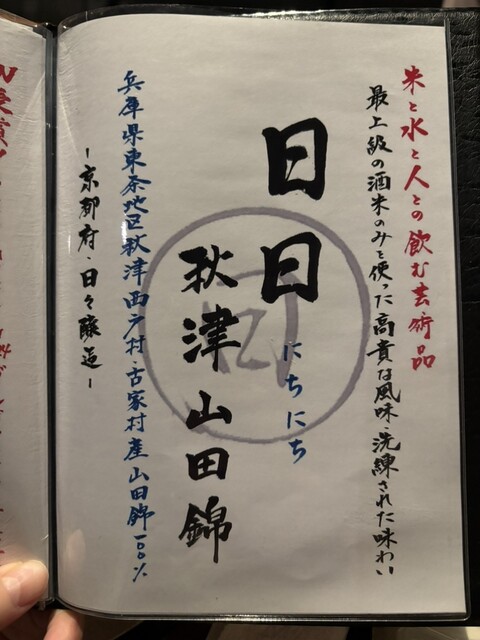 米と水と人との飲む芸術品
最上級の酒米のみを使った高貴な風味・洗練された味わい
日日
にちにち
秋津山田錦
兵庫県東条地区秋津西戸村・古家村産山田錦一〇〇%
-京都府・日々醸造-